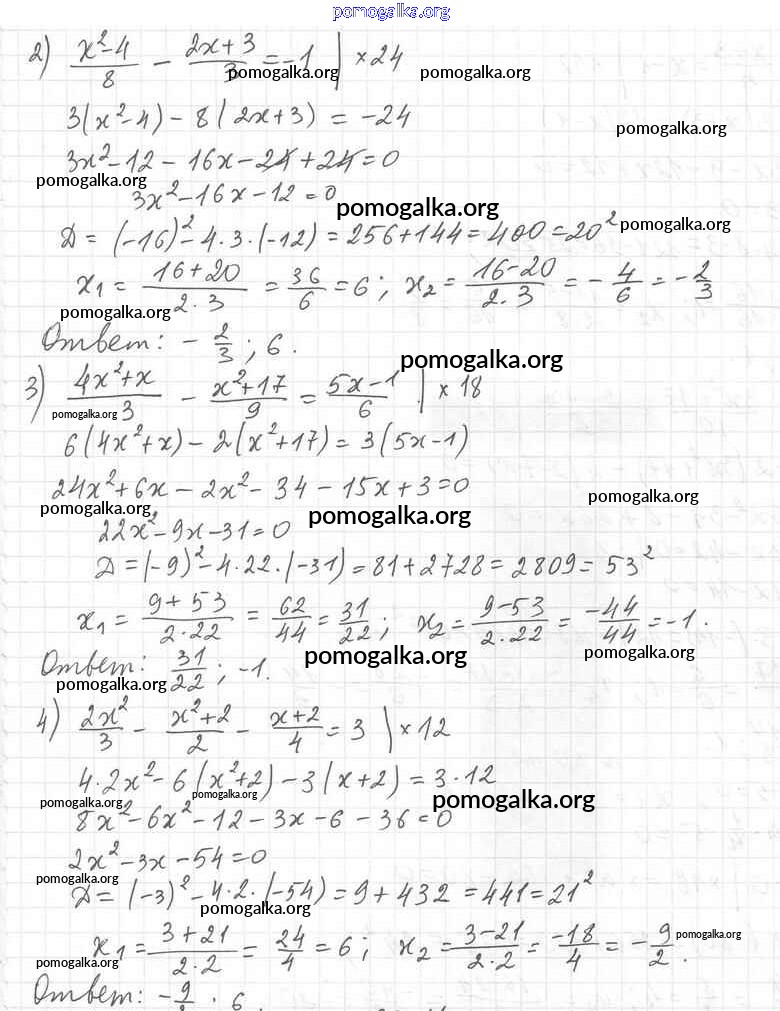 pomogalka.org
2) (x²-4)/8 - (2x+3)/3 = -1 | ×24
pomogalka.org pomogalka.org
3(x²-4) - 8(2x+3) = -24
pomogalka.org
3x²-12-16x-24+24=0
pomogalka.org
3x²-16x-12=0
pomogalka.org
Д = (-16)²-4·3·(-12) = 256+144 = 400 = 20²
pomogalka.org
x₁ = (16+20)/(2·3) = 36/6 = 6; x₂ = (16-20)/(2·3) = -4/6 = -2/3
pomogalka.org
Ответ: -2/3; 6.
pomogalka.org
3) (4x²+x)/3 - (x²+17)/9 = (5x-1)/6 | × 18
pomogalka.org
6(4x²+x) - 2(x²+17) = 3(5x-1)
24x²+6x-2x²-34-15x+3=0
pomogalka.org pomogalka.org
pomogalka.org
22x²-9x-31=0
Д = (-9)²-4·22·(-31) = 81+2728 = 2809 = 53²
x₁ = (9+53)/(2·22) = 62/44 = 31/22; x₂ = (9-53)/(2·22) = -44/44 = -1.
pomogalka.org pomogalka.org
Ответ: 31/22; -1.
pomogalka.org
4) 2x²/3 - (x²+2)/2 - (x+2)/4 = 3 | × 12
4·2x²-6(x²+2)-3(x+2) = 3·12
pomogalka.org pomogalka.org pomogalka.org
8x²-6x²-12-3x-6-36=0
2x²-3x-54=0
pomogalka.org
Д = (-3)²-4·2·(-54) = 9+432 = 441 = 21²
pomogalka.org
x₁ = (3+21)/(2·2) = 24/4 = 6; x₂ = (3-21)/(2·2) = -18/4 = -9/2.
pomogalka.org
pomogalka.org
Ответ: -9/ ; 6